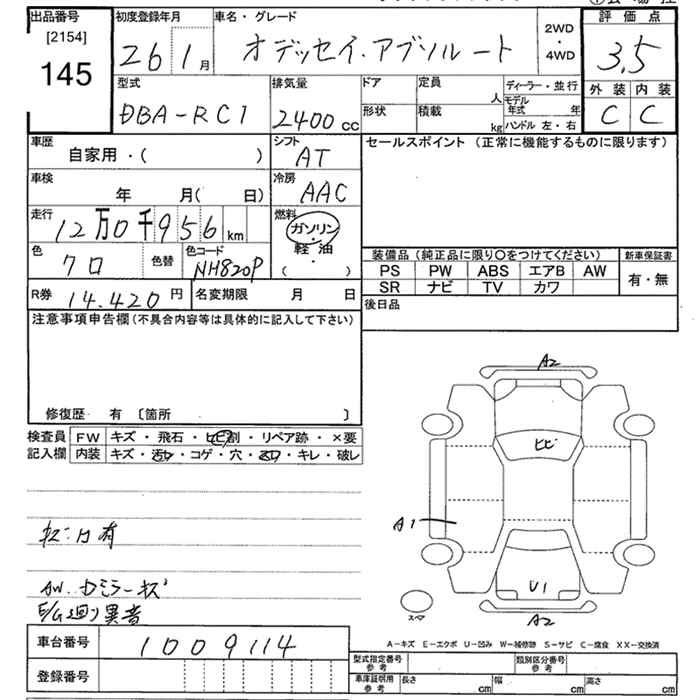 出品番号 初度登録年月 車名・グレード 評価点
[2154]
145
26 1月 オデッセイ・アブソルート 2WD・4WD 3.5
型式 排気量 ドア 定員 人 ディーラー・並行 外装 内装
DBA-RC1 2400cc 形状 積載 kg モデル年式 年 ハンドル 左・右 C C
車歴 シフト セールスポイント (正常に機能するものに限ります)
自家用・( ) AT
車検 冷房
年 月( 日) AAC
走行 燃料
12万0千956km ガソリン・軽油
色 色替 色コード ( )
クロ NH820P
装備品(純正品に限り○をつけてください) 新車保証書
PS PW ABS エアB AW 有・無
SR ナビ TV カワ
R券 14.420円 名変期限 月 日 後日品
注意事項申告欄(不具合内容等は具体的に記入して下さい)
修復歴 有 [箇所 ]
検査員 FW キズ・飛石・ヒビ割・リペア跡・×要
記入欄 内装 キズ・汚レ・コゲ・穴・・キレ・破レ
A2
ヒビ
A1
U1
A2
スペア
有
AW.ドミラーキズ
E/G廻り異音
A-キズ E-エクボ U-凹み W-補修跡 S-サビ C-腐食 XX-交換済
車台番号 1009114
型式指定番号 参考 類別区分番号 参考
登録番号
車庫証明用 参考 長さ cm 幅 cm 高さ cm